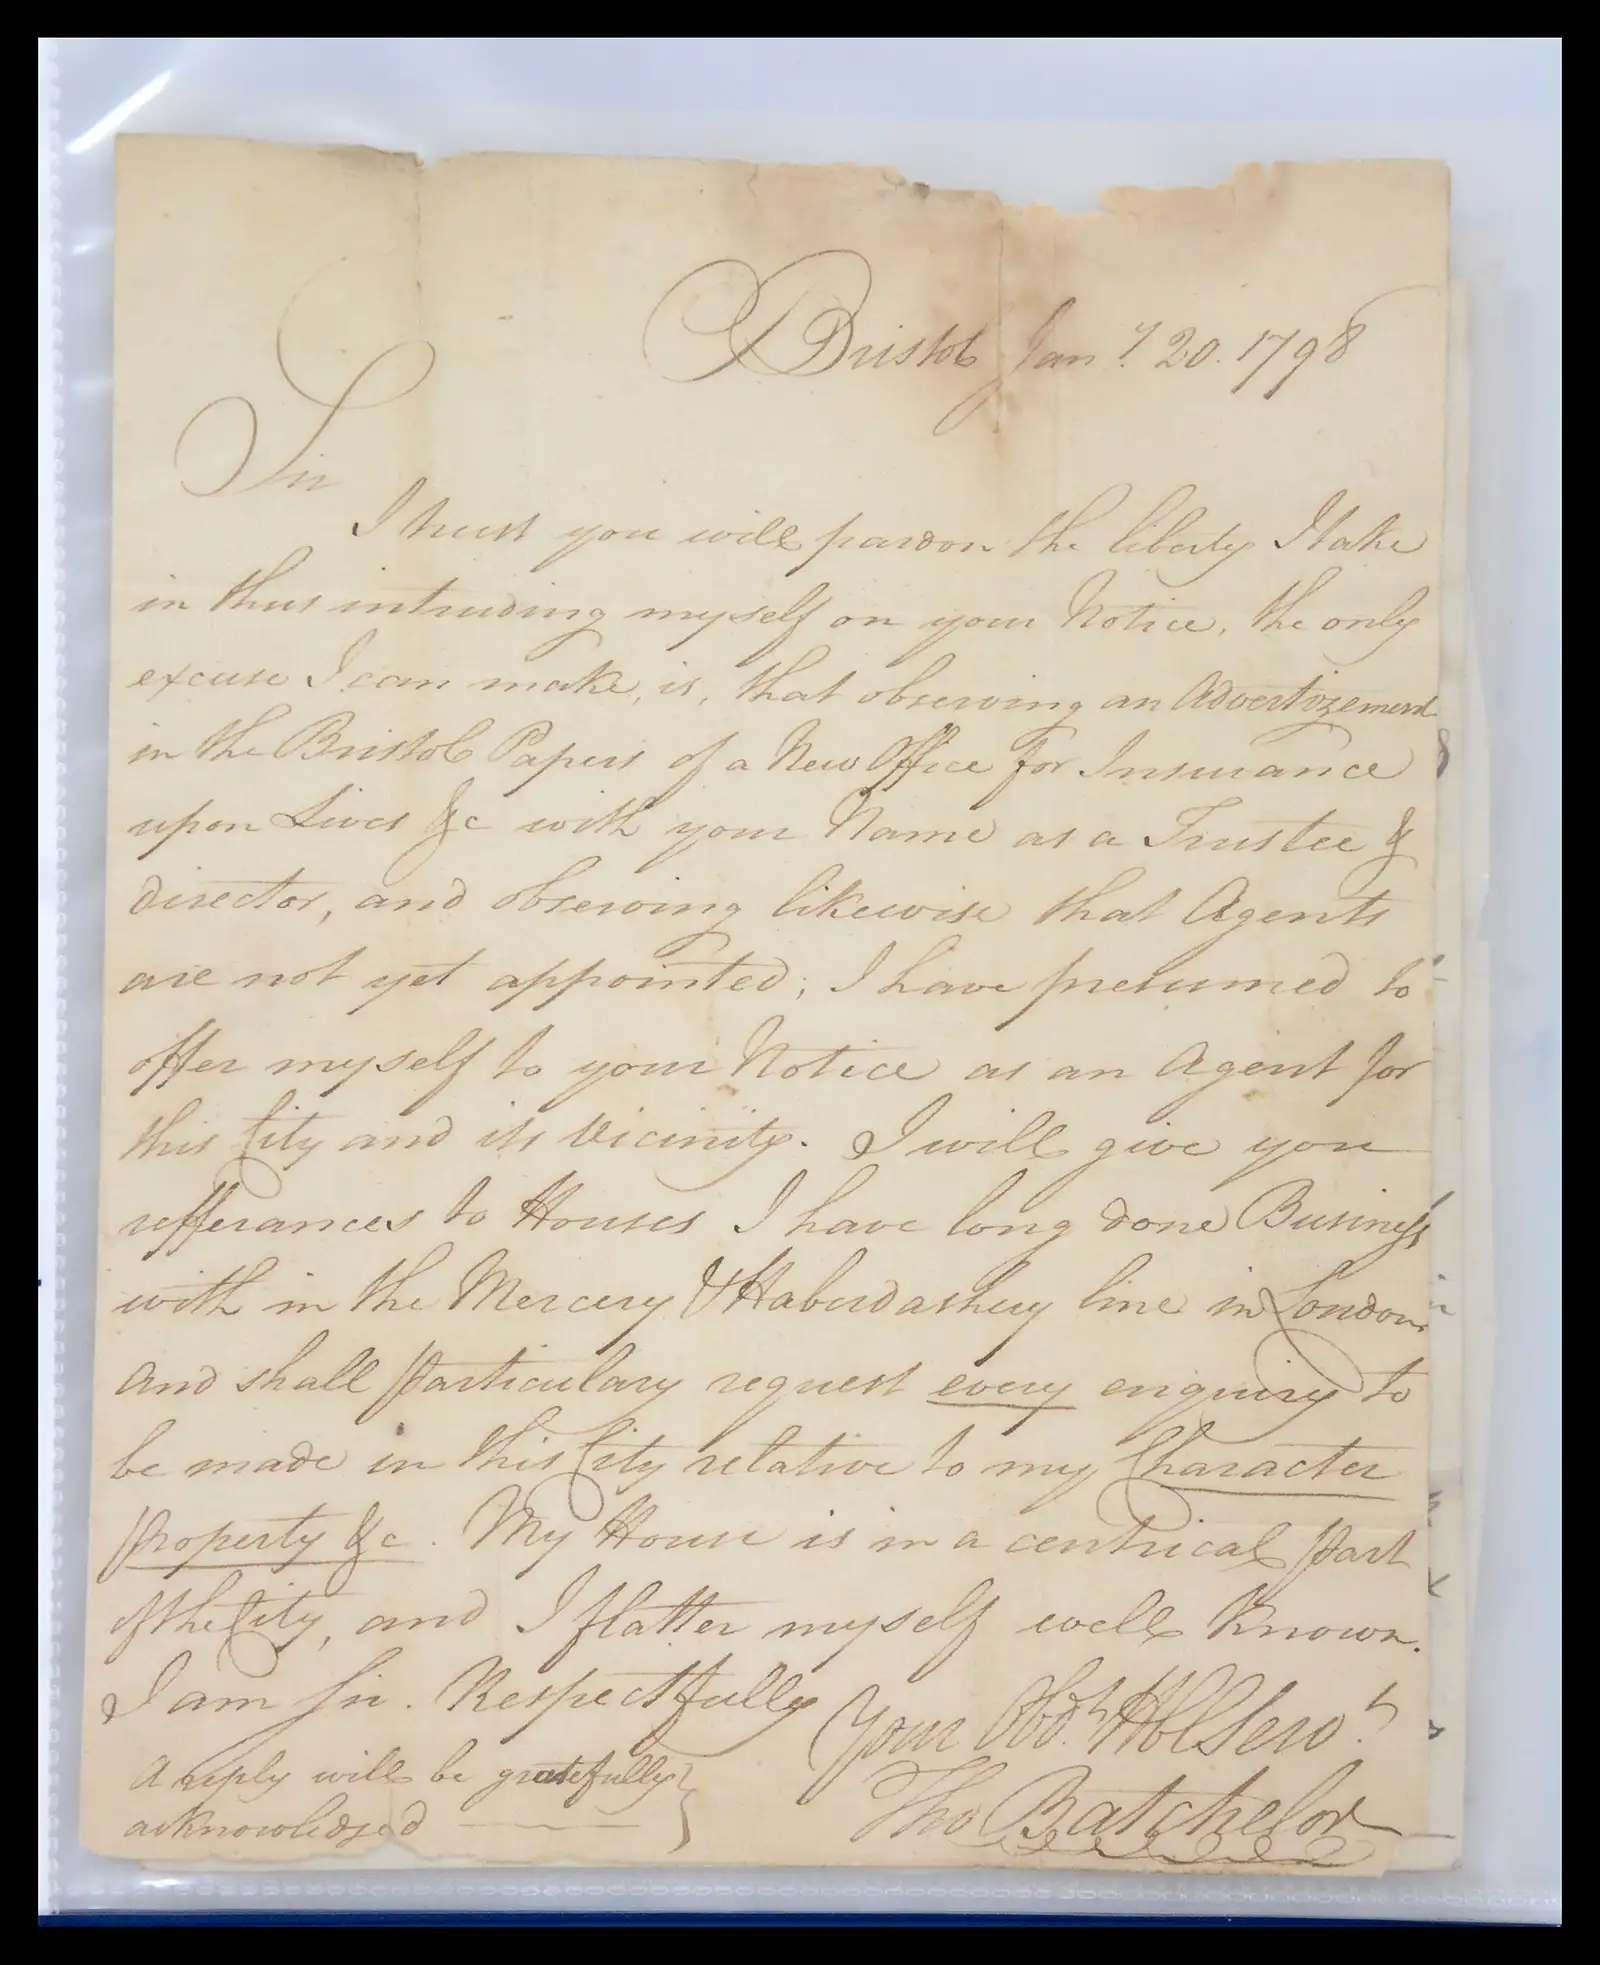 Bristol Jany. 20. 1798
Sir
I trust you will pardon the liberty I take
in thus intruding myself on your Notice, the only
excuse I can make, is, that observing an Advertizement
in the Bristol Papers of a New Office for Insurance
upon Lives &c with your Name as a Trustee &
director, and observing likewise that Agents
are not yet appointed; I have presumed to
offer myself to your Notice as an Agent for
this City and its Vicinity. I will give you
refferances to Houses I have long done Business
with in the Mercery & Haberdashery line in London
and shall particulary request every enquiry to
be made in this City relative to my Character
property &c. My House is in a centrical part
of the City, and I flatter myself well Known.
I am Sir. Respectfully
Your Obdt. Hbl Servt.
Tho Batchelor
A reply will be gratefully
acknowledged